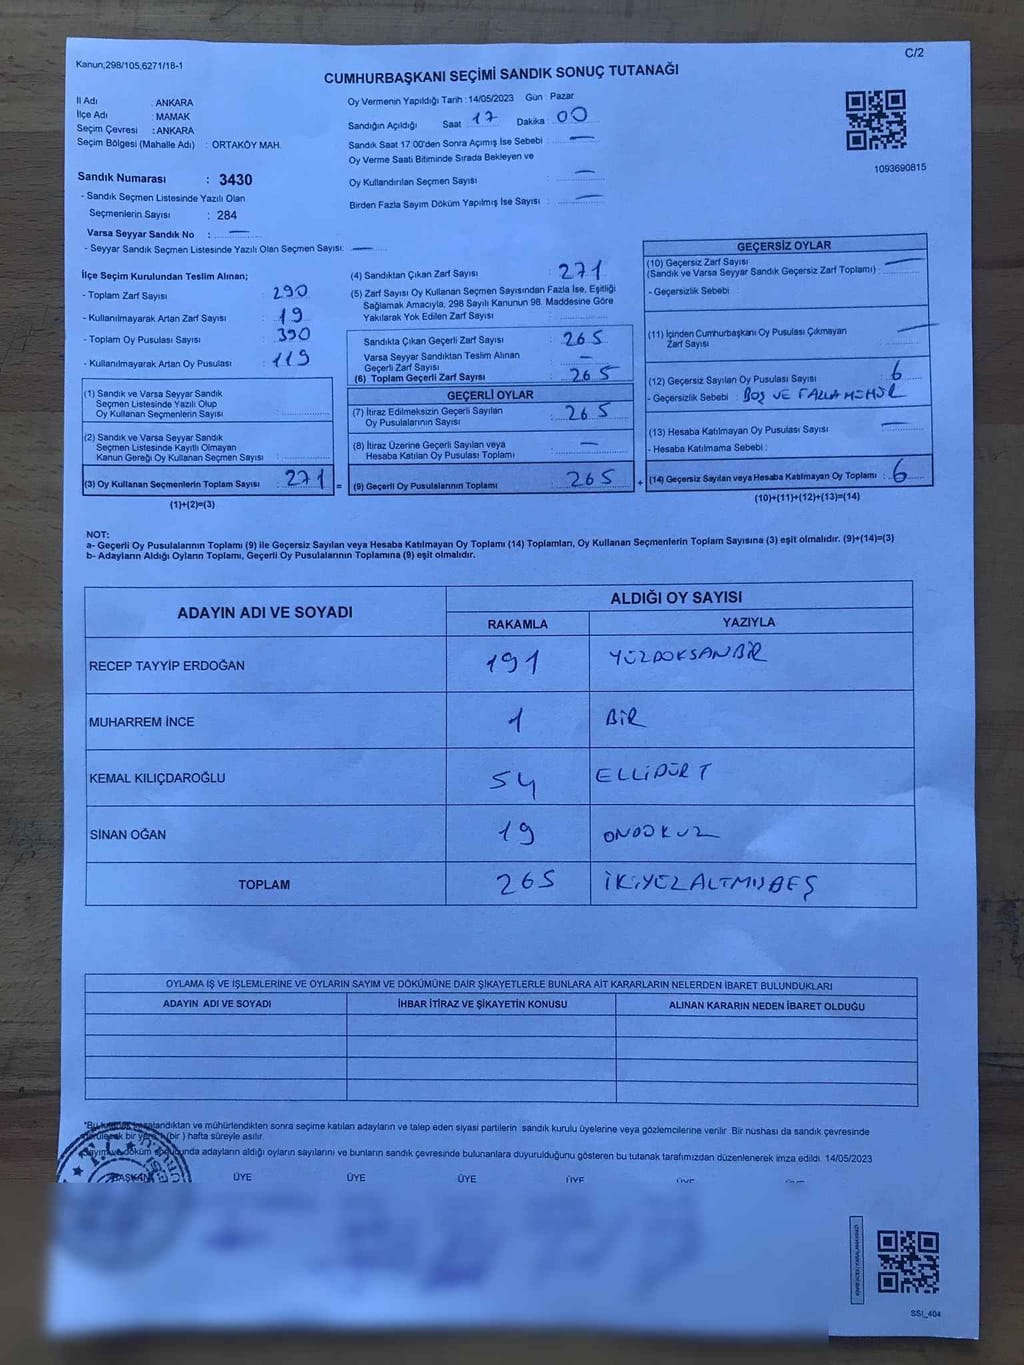 Kanun;298/105,6271/18-1
C/2
CUMHURBAŞKANI SEÇİMİ SANDIK SONUÇ TUTANAĞI
İl Adı : ANKARA
İlçe Adı : MAMAK
Seçim Çevresi : ANKARA
Seçim Bölgesi (Mahalle Adı) : ORTAKÖY MAH.
Sandık Numarası : 3430
- Sandık Seçmen Listesinde Yazılı Olan
Seçmenlerin Sayısı : 284
Varsa Seyyar Sandık No : —
- Seyyar Sandık Seçmen Listesinde Yazılı Olan Seçmen Sayısı: —
Oy Vermenin Yapıldığı Tarih : 14/05/2023 Gün : Pazar
Sandığın Açıldığı Saat 17 Dakika 00
Sandık Saat 17 00'den Sonra Açımış İse Sebebi : —
Oy Verme Saati Bitiminde Sırada Bekleyen ve
Oy Kullandırılan Seçmen Sayısı : —
Birden Fazla Sayım Döküm Yapılmış İse Sayısı : —
1093690815
İlçe Seçim Kurulundan Teslim Alınan;
- Toplam Zarf Sayısı : 290
- Kullanılmayarak Artan Zarf Sayısı : 19
- Toplam Oy Pusulası Sayısı : 390
- Kullanılmayarak Artan Oy Pusulası : 119
(1) Sandık ve Varsa Seyyar Sandık
Seçmen Listesinde Yazılı Olup
Oy Kullanan Seçmenlerin Sayısı :
(2) Sandık ve Varsa Seyyar Sandık
Seçmen Listesinde Kayıtlı Olmayan
Kanun Gereği Oy Kullanan Seçmen Sayısı :
(3) Oy Kullanan Seçmenlerin Toplam Sayısı : 271 =
(1)+(2)=(3)
(4) Sandıktan Çıkan Zarf Sayısı : 271
(5) Zarf Sayısı Oy Kullanan Seçmen Sayısından Fazla İse, Eşitliği
Sağlamak Amacıyla; 298 Sayılı Kanunun 98. Maddesine Göre
Yakılarak Yok Edilen Zarf Sayısı :
Sandıkta Çıkan Geçerli Zarf Sayısı : 265
Varsa Seyyar Sandıktan Teslim Alınan
Geçerli Zarf Sayısı : —
(6) Toplam Geçerli Zarf Sayısı : 265
GEÇERLİ OYLAR
(7) İtiraz Edilmeksizin Geçerli Sayılan
Oy Pusulalarının Sayısı : 265
(8) İtiraz Üzerine Geçerli Sayılan veya
Hesaba Katılan Oy Pusulası Toplamı : —
(9) Geçerli Oy Pusulalarının Toplamı : 265 +
GEÇERSİZ OYLAR
(10) Geçersiz Zarf Sayısı
(Sandık ve Varsa Seyyar Sandık Geçersiz Zarf Toplamı) : —
- Geçersizlik Sebebi :
(11) İçinden Cumhurbaşkanı Oy Pusulası Çıkmayan
Zarf Sayısı : —
(12) Geçersiz Sayılan Oy Pusulası Sayısı : 6
- Geçersizlik Sebebi : BOŞ VE FAZLA MÜHÜR
(13) Hesaba Katılmayan Oy Pusulası Sayısı : —
- Hesaba Katılmama Sebebi :
(14) Geçersiz Sayılan veya Hesaba Katılmayan Oy Toplamı : 6
(10)+(11)+(12)+(13)=(14)
NOT:
a- Geçerli Oy Pusulalarının Toplamı (9) ile Geçersiz Sayılan veya Hesaba Katılmayan Oy Toplamı (14) Toplamları, Oy Kullanan Seçmenlerin Toplam Sayısına (3) eşit olmalıdır. (9)+(14)=(3)
b- Adayların Aldığı Oyların Toplamı, Geçerli Oy Pusulalarının Toplamına (9) eşit olmalıdır.
ADAYIN ADI VE SOYADI
ALDIĞI OY SAYISI
RAKAMLA YAZIYLA
RECEP TAYYİP ERDOĞAN 191 YÜZDOKSANBİR
MUHARREM İNCE 1 BİR
KEMAL KILIÇDAROĞLU 54 ELLİDÖRT
SİNAN OĞAN 19 ONDOKUZ
TOPLAM 265 İKİYÜZALTMIŞBEŞ
OYLAMA İŞ VE İŞLEMLERİNE VE OYLARIN SAYIM VE DÖKÜMÜNE DAİR ŞİKAYETLERLE BUNLARA AİT KARARLARIN NELERDEN İBARET BULUNDUKLARI
ADAYIN ADI VE SOYADI İHBAR İTİRAZ VE ŞİKAYETİN KONUSU ALINAN KARARIN NEDEN İBARET OLDUĞU
ve mühürlendikten sonra seçime katılan adayların ve talep eden siyasi partilerin sandık kurulu üyelerine veya gözlemcilerine verilir Bir nüshası da sandık çevresinde
bir (bir ) hafta süreyle asılır.
adayların aldığı oyların sayılarını ve bunların sandık çevresinde bulunanlara duyurulduğunu gösteren bu tutanak tarafımızdan düzenlenerek imza edildi. 14/05/2023
T.C.
BAŞKAN ÜYE ÜYE ÜYE ÜYE
SSI_404